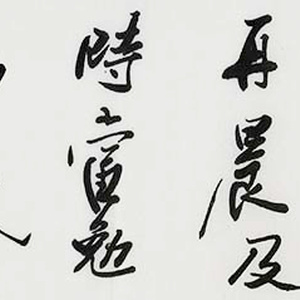 再晨及
時當勉